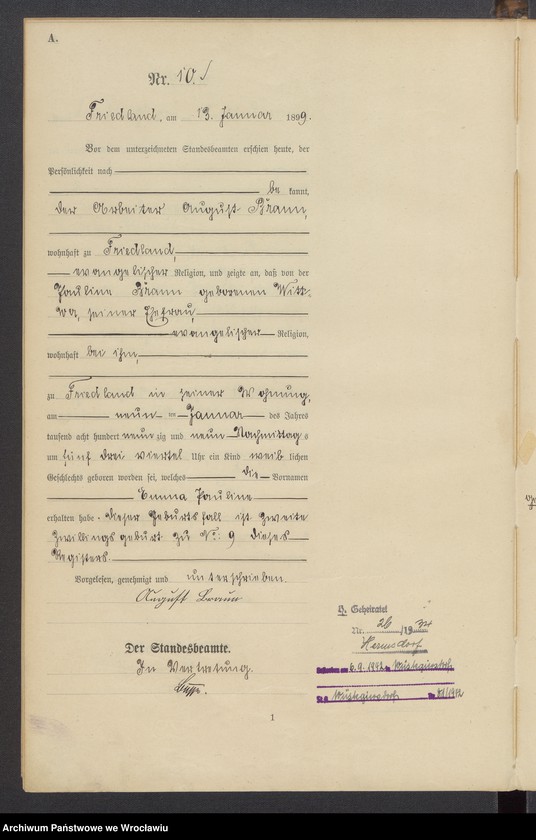 A.
Nr. 10.
Friedland, am 13. Januar 1899.
Vor dem unterzeichneten Standesbeamten erschien heute, der
Persönlichkeit nach
be kannt,
der Arbeiter August Brann,
wohnhaft zu Friedland,
evangelischer Religion, und zeigte an, daß von der
Pauline Brann geborenen Witt-
wa, seiner Ehefrau,
evangelischer Religion,
wohnhaft bei ihm,
zu Friedland in seiner Wohnung,
am neun ten Januar des Jahres
tausend acht hundert neun zig und neun Nachmittag s
um fünf drei viertel Uhr ein Kind weib lichen
Geschlechts geboren worden sei, welches die Vornamen
Emma Pauline
erhalten habe. Dieser Geburtsfall ist zweite
Zwillingsgeburt zu No: 9 dieses
Registers.
Vorgelesen, genehmigt und unterschrieben.
August Braun
Der Standesbeamte.
In Vertretung.
H. Geheiratet
Nr. 26/1934
Hermsdorf
Gestorben am 6.9.1942 in Wüstegiersdorf
St.A. Wüstegiersdorf Nr. /1942
1
Archiwum Państwowe we Wrocławiu